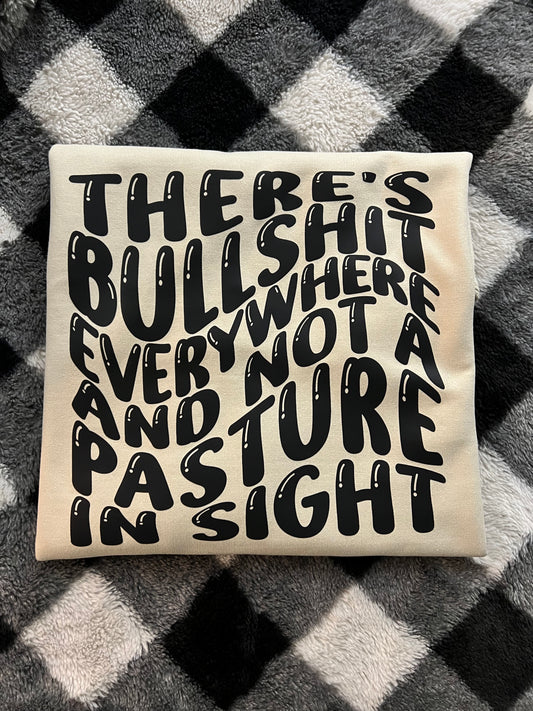 THERE'S
BULLSHIT
EVERYWHERE
AND NOT A
PASTURE
IN SIGHT